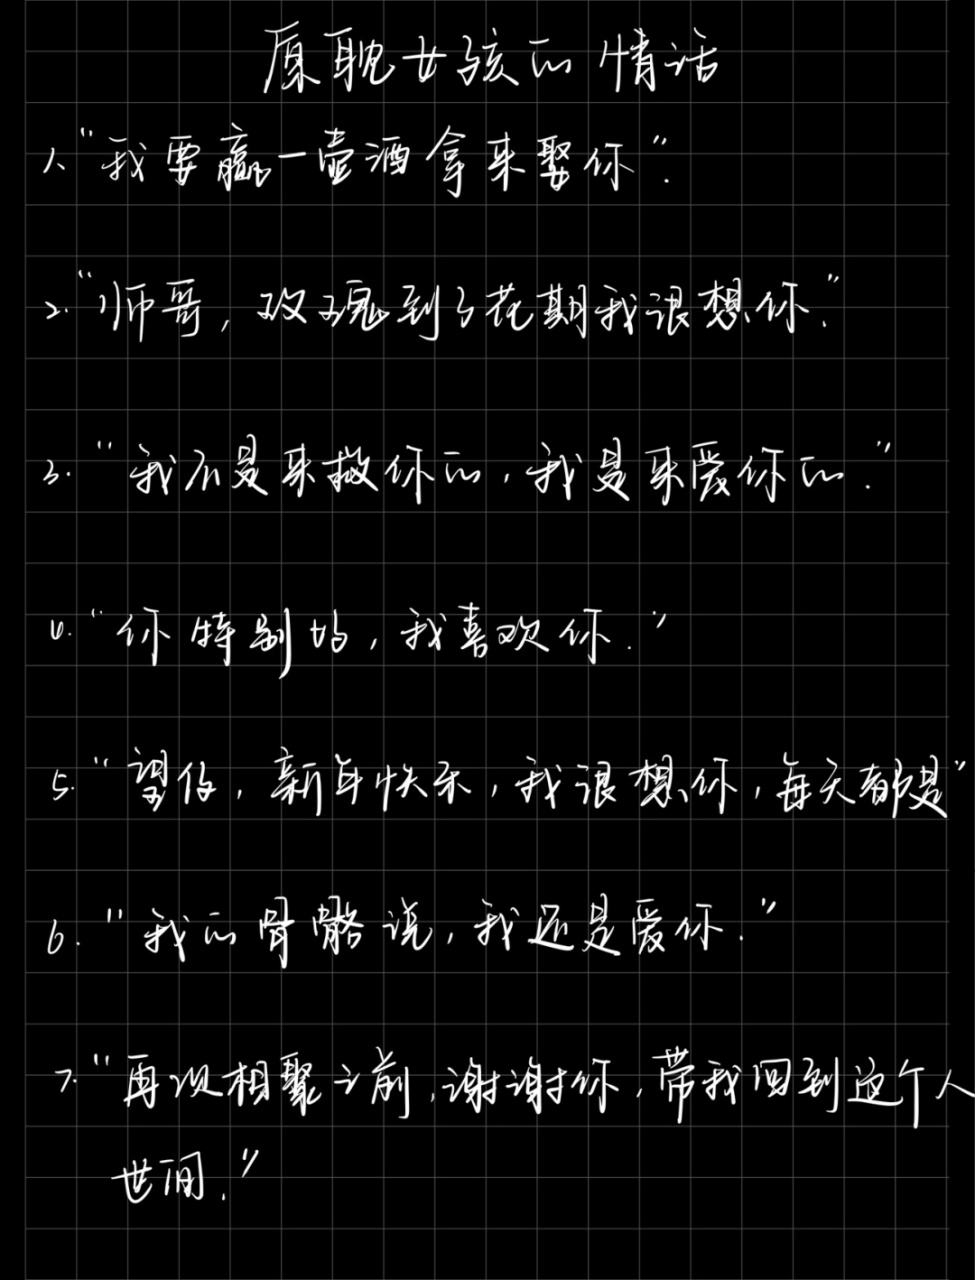 原耽女孩的情话
1、“我要赢一壶酒拿来娶你”.
2.“师哥,玫瑰到了花期我很想你.”
3.“我不是来救你的,我是来爱你的.”
4.“你特别好,我喜欢你.”
5.“望仔,新年快乐,我很想你,每天都是”
6.“我的骨骼说,我还是爱你.”
7.“再次相聚之前,谢谢你,带我回到这个人
世间.”